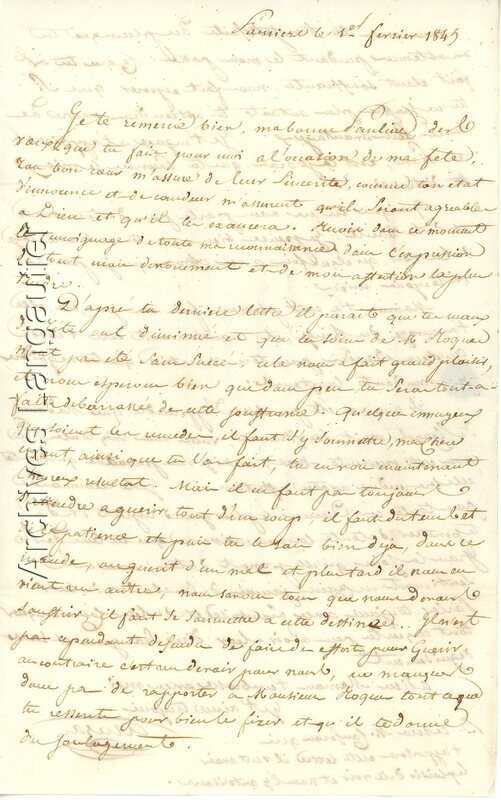 le 1er fevrier 1845
Je te remercie bien, ma bonne Pauline des
vœux que tu fais pour moi a l'occasion de ma fete.
Ton bon cœur m'assure de leur sincerité, comme ton etat
d'innocence et de candeur m'assurent qu'ils seront agreables
a Dieu et qu'il les exaucera. Recois dans ce moment
le temoignage de toute ma reconnaissance dans l'expression
de tout mon devouement et de mon affection la plus
tendre.
D'après ta derniere lettre il parait que tes maux
de tete ont diminué et que les soins de Mr Hoque
n'ont pas ete sans succès, cela nous a fait grand plaisir,
et nous esperons bien que dans peu tu seras tout-a-
fait debarrassée de cette souffrance. Quelque ennuyeux
que soient les remedes, il faut s'y soumettre, ma chere
enfant, ainsi que tu l'as fait, tu en vois maintenant
l'heureux resultat. Mais il ne faut pas toujours
s'attendre a guerir tout d'un coup, il faut du tems et
de la patience et puis tu le sais bien deja, dans le
monde, on guerit d'un mal et plus tard il nous en
vient un autre, nous savons tous que nous devons
souffrir, il faut se soumettre a cette destinée. Il n'est
pas cependant defendu de faire des efforts pour guerir
au contraire c'est un devoir pour nous, ne manque
donc pas de rapporter a Monsieur Hoque tout ce que
tu ressens pour bien le fixer et qu'il te donne
du soulagement.
Archives Langaurel